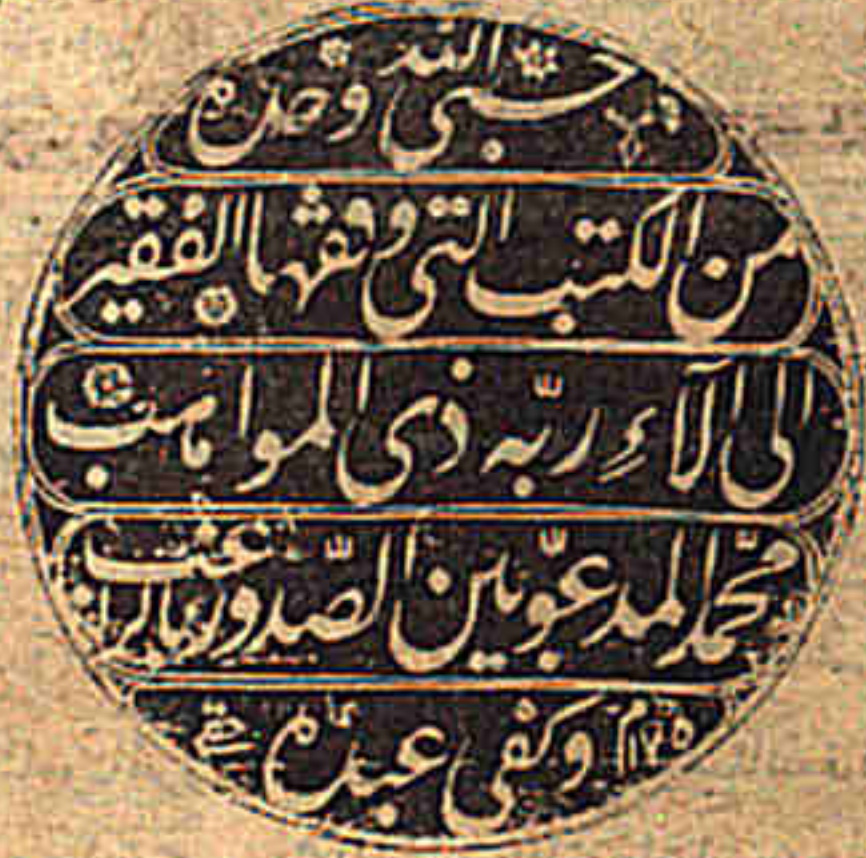 حسبي الله وحده
من الكتب التي وقفها الفقير
الى آلاءِ ربّه ذي المواهب
محمّد المدعوّ بين الصّدور بالراغب
وكفى عبده